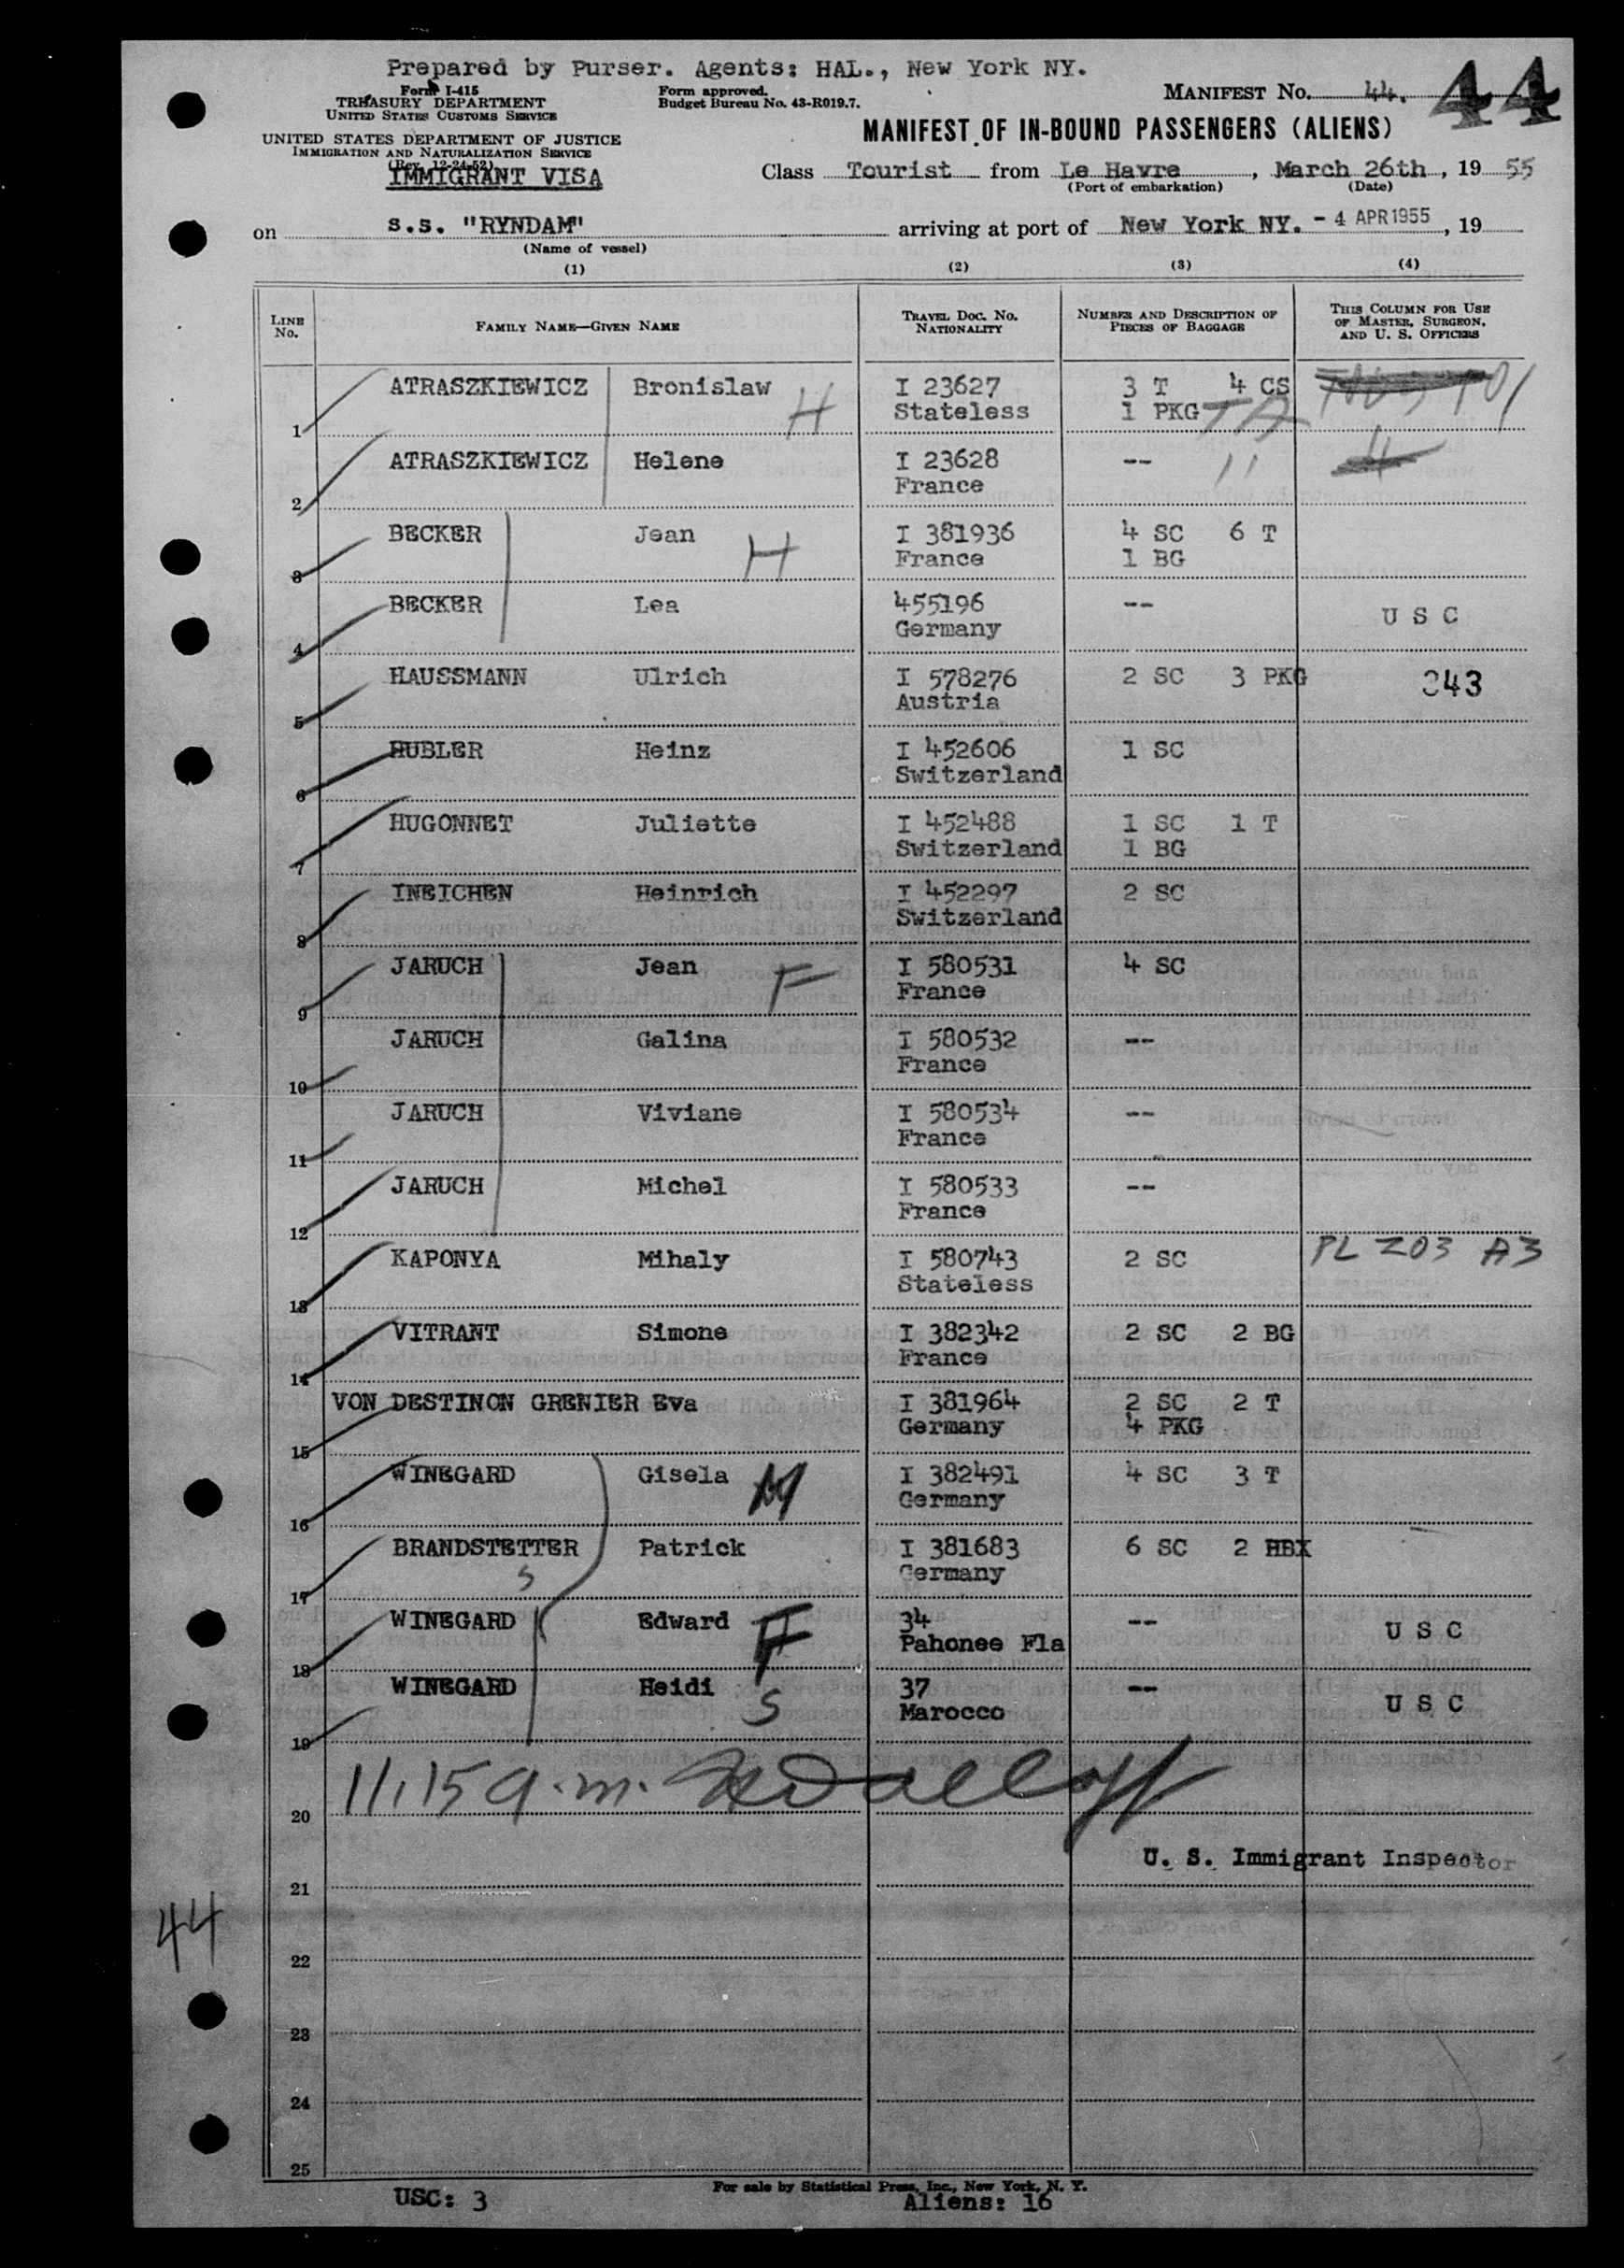 Prepared by Purser. Agents: HAL., New York NY.
Form I-415
TREASURY DEPARTMENT
UNITED STATES CUSTOMS SERVICE
Form approved.
Budget Bureau No. 43-R019.7.
MANIFEST No. 44. 44
UNITED STATES DEPARTMENT OF JUSTICE
IMMIGRATION AND NATURALIZATION SERVICE
(Rev. 12-24-52)
IMMIGRANT VISA
MANIFEST OF IN-BOUND PASSENGERS (ALIENS)
Class Tourist from Le Havre, March 26th, 19 55
(Port of embarkation) (Date)
on s.s. "RYNDAM" arriving at port of New York NY. - 4 APR 1955, 19
(Name of vessel)
(1) (2) (3) (4)
LINE No. FAMILY NAME—GIVEN NAME TRAVEL DOC. NO. NATIONALITY NUMBER AND DESCRIPTION OF PIECES OF BAGGAGE THIS COLUMN FOR USE OF MASTER, SURGEON, AND U. S. OFFICERS
1 ATRASZKIEWICZ Bronislaw H I 23627 3 T 4 CS
Stateless 1 PKG
2 ATRASZKIEWICZ Helene I 23628 -- 11
France
3 BECKER Jean H I 381936 4 SC 6 T
France 1 BG
4 BECKER Lea 455196 -- U S C
Germany
5 HAUSSMANN Ulrich I 578276 2 SC 3 PKG 343
Austria
6 HUBLER Heinz I 452606 1 SC
Switzerland
7 HUGONNET Juliette I 452488 1 SC 1 T
Switzerland 1 BG
8 INEICHEN Heinrich I 452297 2 SC
Switzerland
9 JARUCH Jean F I 580531 4 SC
France
10 JARUCH Galina I 580532 --
France
11 JARUCH Viviane I 580534 --
France
12 JARUCH Michel I 580533 --
France
13 KAPONYA Mihaly I 580743 2 SC PL 203 A3
Stateless
14 VITRANT Simone I 382342 2 SC 2 BG
France
15 VON DESTINON GRENIER Eva I 381964 2 SC 2 T
Germany 4 PKG
16 WINEGARD Gisela M I 382491 4 SC 3 T
Germany
17 BRANDSTETTER S Patrick I 381683 6 SC 2 HBX
Germany
18 WINEGARD Edward F 34 -- U S C
Pahonee Fla
19 WINEGARD Heidi S 37 -- U S C
Marocco
20 11,15 a.m.
U. S. Immigrant Inspector
21
44
22
23
24
25
For sale by Statistical Press, Inc., New York, N. Y.
USC: 3 Aliens: 16